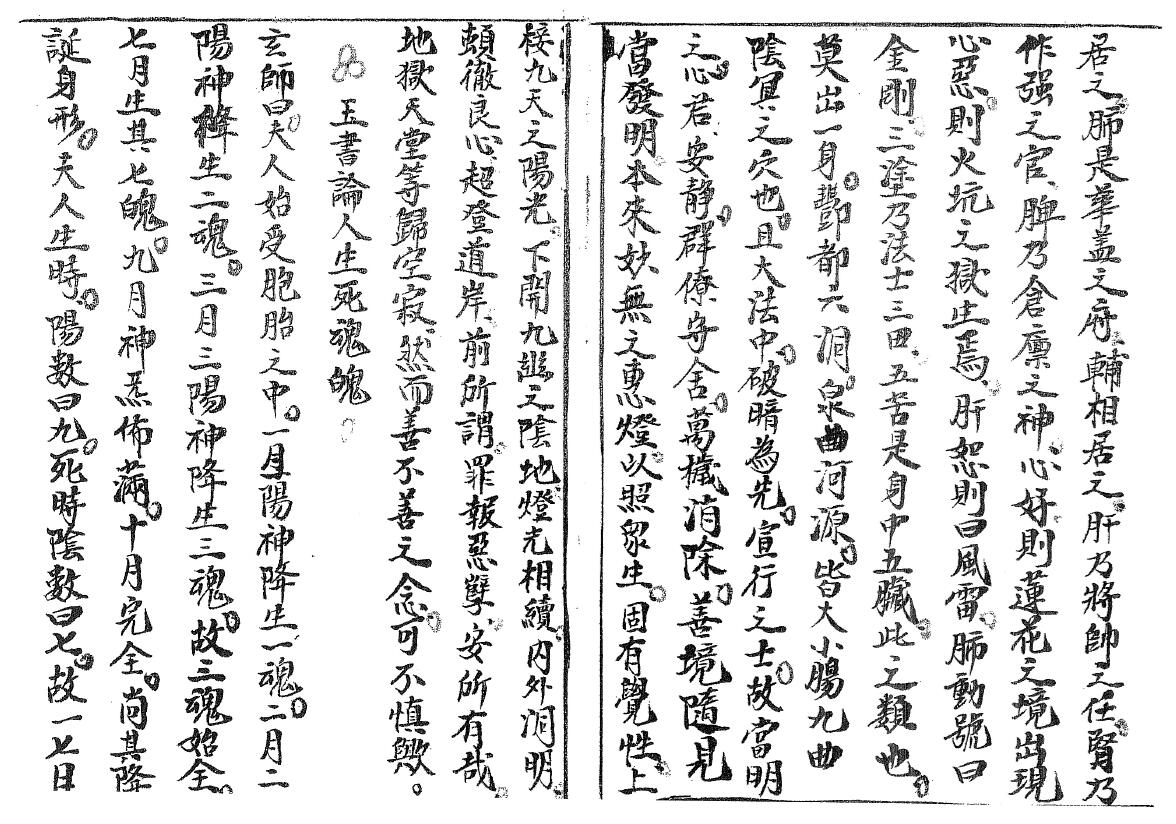 居之。肺是華盖之府、輔相居之。肝乃將帥之任。腎乃
作强之官、脾乃倉廪之神。心好則蓮花之境出現
心惡。則火坑之獄生焉、肝恕則曰風雷。肺動號曰
金剛、三塗乃法士三田、五苦是身中五臟。此之類也。
莫出一身。酆都六洞。泉曲河源。皆大小腸九曲
陰冥之穴也。且大法中。破暗為先。宣行之士。故當明
之心君、安静。群僚、守舍。萬穢消除。善境隨見
當發明本來妙無之惠燈。以照衆生。固有覺性。上
接九天之陽光。下開九幽之陰地燈光相續。内外洞明。
頼徹良心、超登道岸、前所謂。罪報惡孽。安所有哉。
地獄天堂等歸空寂。然而善不善之念。可不慎歟。
玉書論人生死魂魄。
玄師曰。夫人始受胞胎之中。一月陽神降生一魂。二月二
陽神降生二魂。三月三陽神降生三魂。故三魂始全。
七月生其七魄。九月神炁佈滿。十月完全。尚其降
誕身形。夫人生時。陽数曰九。死時陰数曰七。故一七日